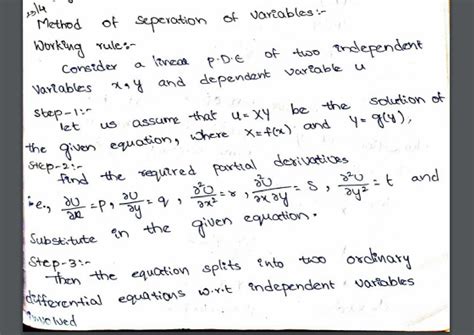 23/4
Method of seperation of variables:-
Working rule:-
Consider a linear P.D.E of two independent
variables x, y and dependent variable u
Step-1:-
let us assume that u = XY be the solution of
the given equation, where X = f(x) and Y = g(y),
Step-2:-
Find the required partial derivatives
i.e., ∂U/∂x = p, ∂U/∂y = q, ∂²U/∂x² = r, ∂²U/∂x∂y = S, ∂²U/∂y² = t and
Substitute in the given equation.
Step-3:-
Then the equation splits into two ordinary
differential equations w.r.t independent variables
involved